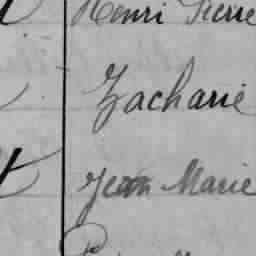 Henri Pierre
Zacharie
Jean Marie